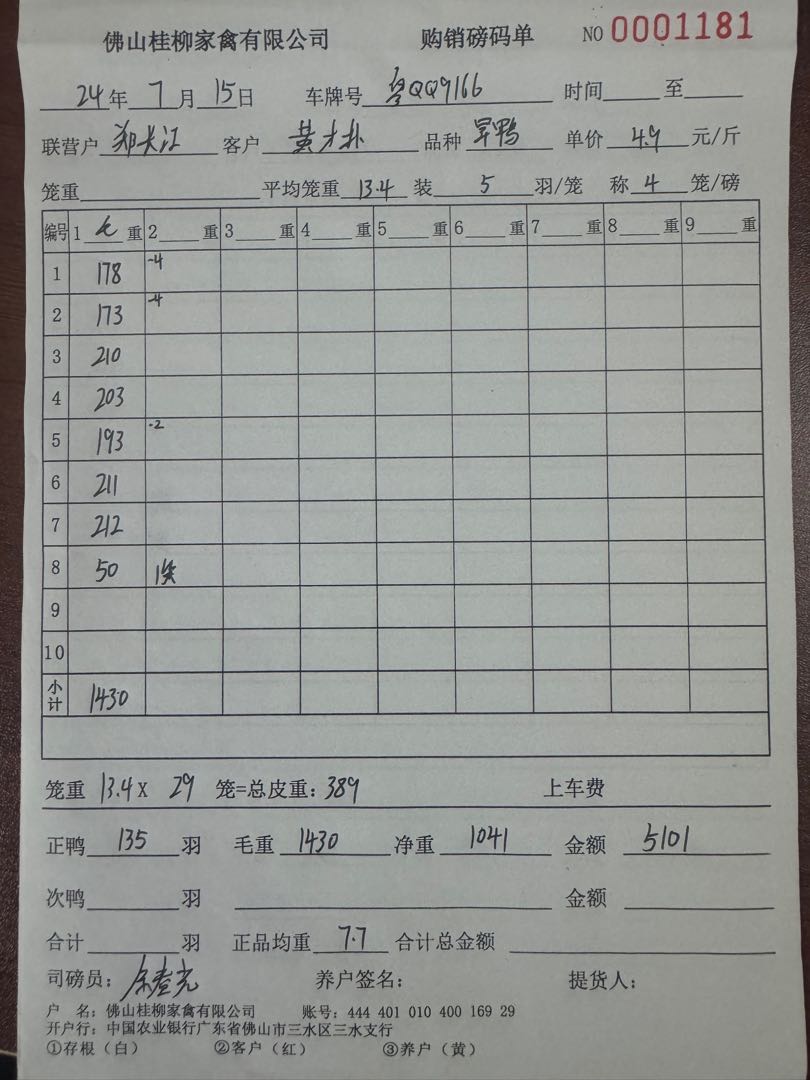 佛山桂柳家禽有限公司 购销磅码单 NO 0001181
24年 7月 15日 车牌号 粤QQ9166 时间 至
联营户 郑长江 客户 黄才朴 品种 旱鸭 单价 4.9 元/斤
笼重 平均笼重 13.4 装 5 羽/笼 称 4 笼/磅
编号 1 毛 重 2 重 3 重 4 重 5 重 6 重 7 重 8 重 9 重
1 178 -4
2 173 -4
3 210
4 203
5 193 -2
6 211
7 212
8 50 1笼
9
10
小计 1430
笼重 13.4 X 29 笼=总皮重: 389 上车费
正鸭 135 羽 毛重 1430 净重 1041 金额 5101
次鸭 羽 金额
合计 羽 正品均重 7.7 合计总金额
司磅员: 养户签名: 提货人:
户 名: 佛山桂柳家禽有限公司 账号: 444 401 010 400 169 29
开户行: 中国农业银行广东省佛山市三水区三水支行
①存根(白) ②客户(红) ③养户(黄)